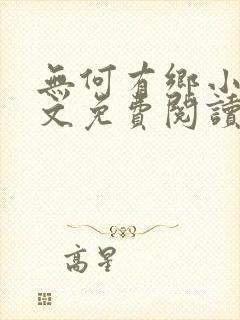 無何有鄉小
文免費閱讀
高星